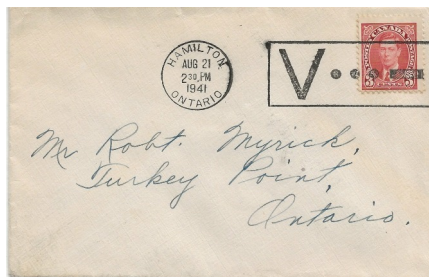 HAMILTON
AUG 21
2 30 PM
1941
ONTARIO
V
CANADA
3 3
Mr Robt. Myrick,
Turkey Point,
Ontario.